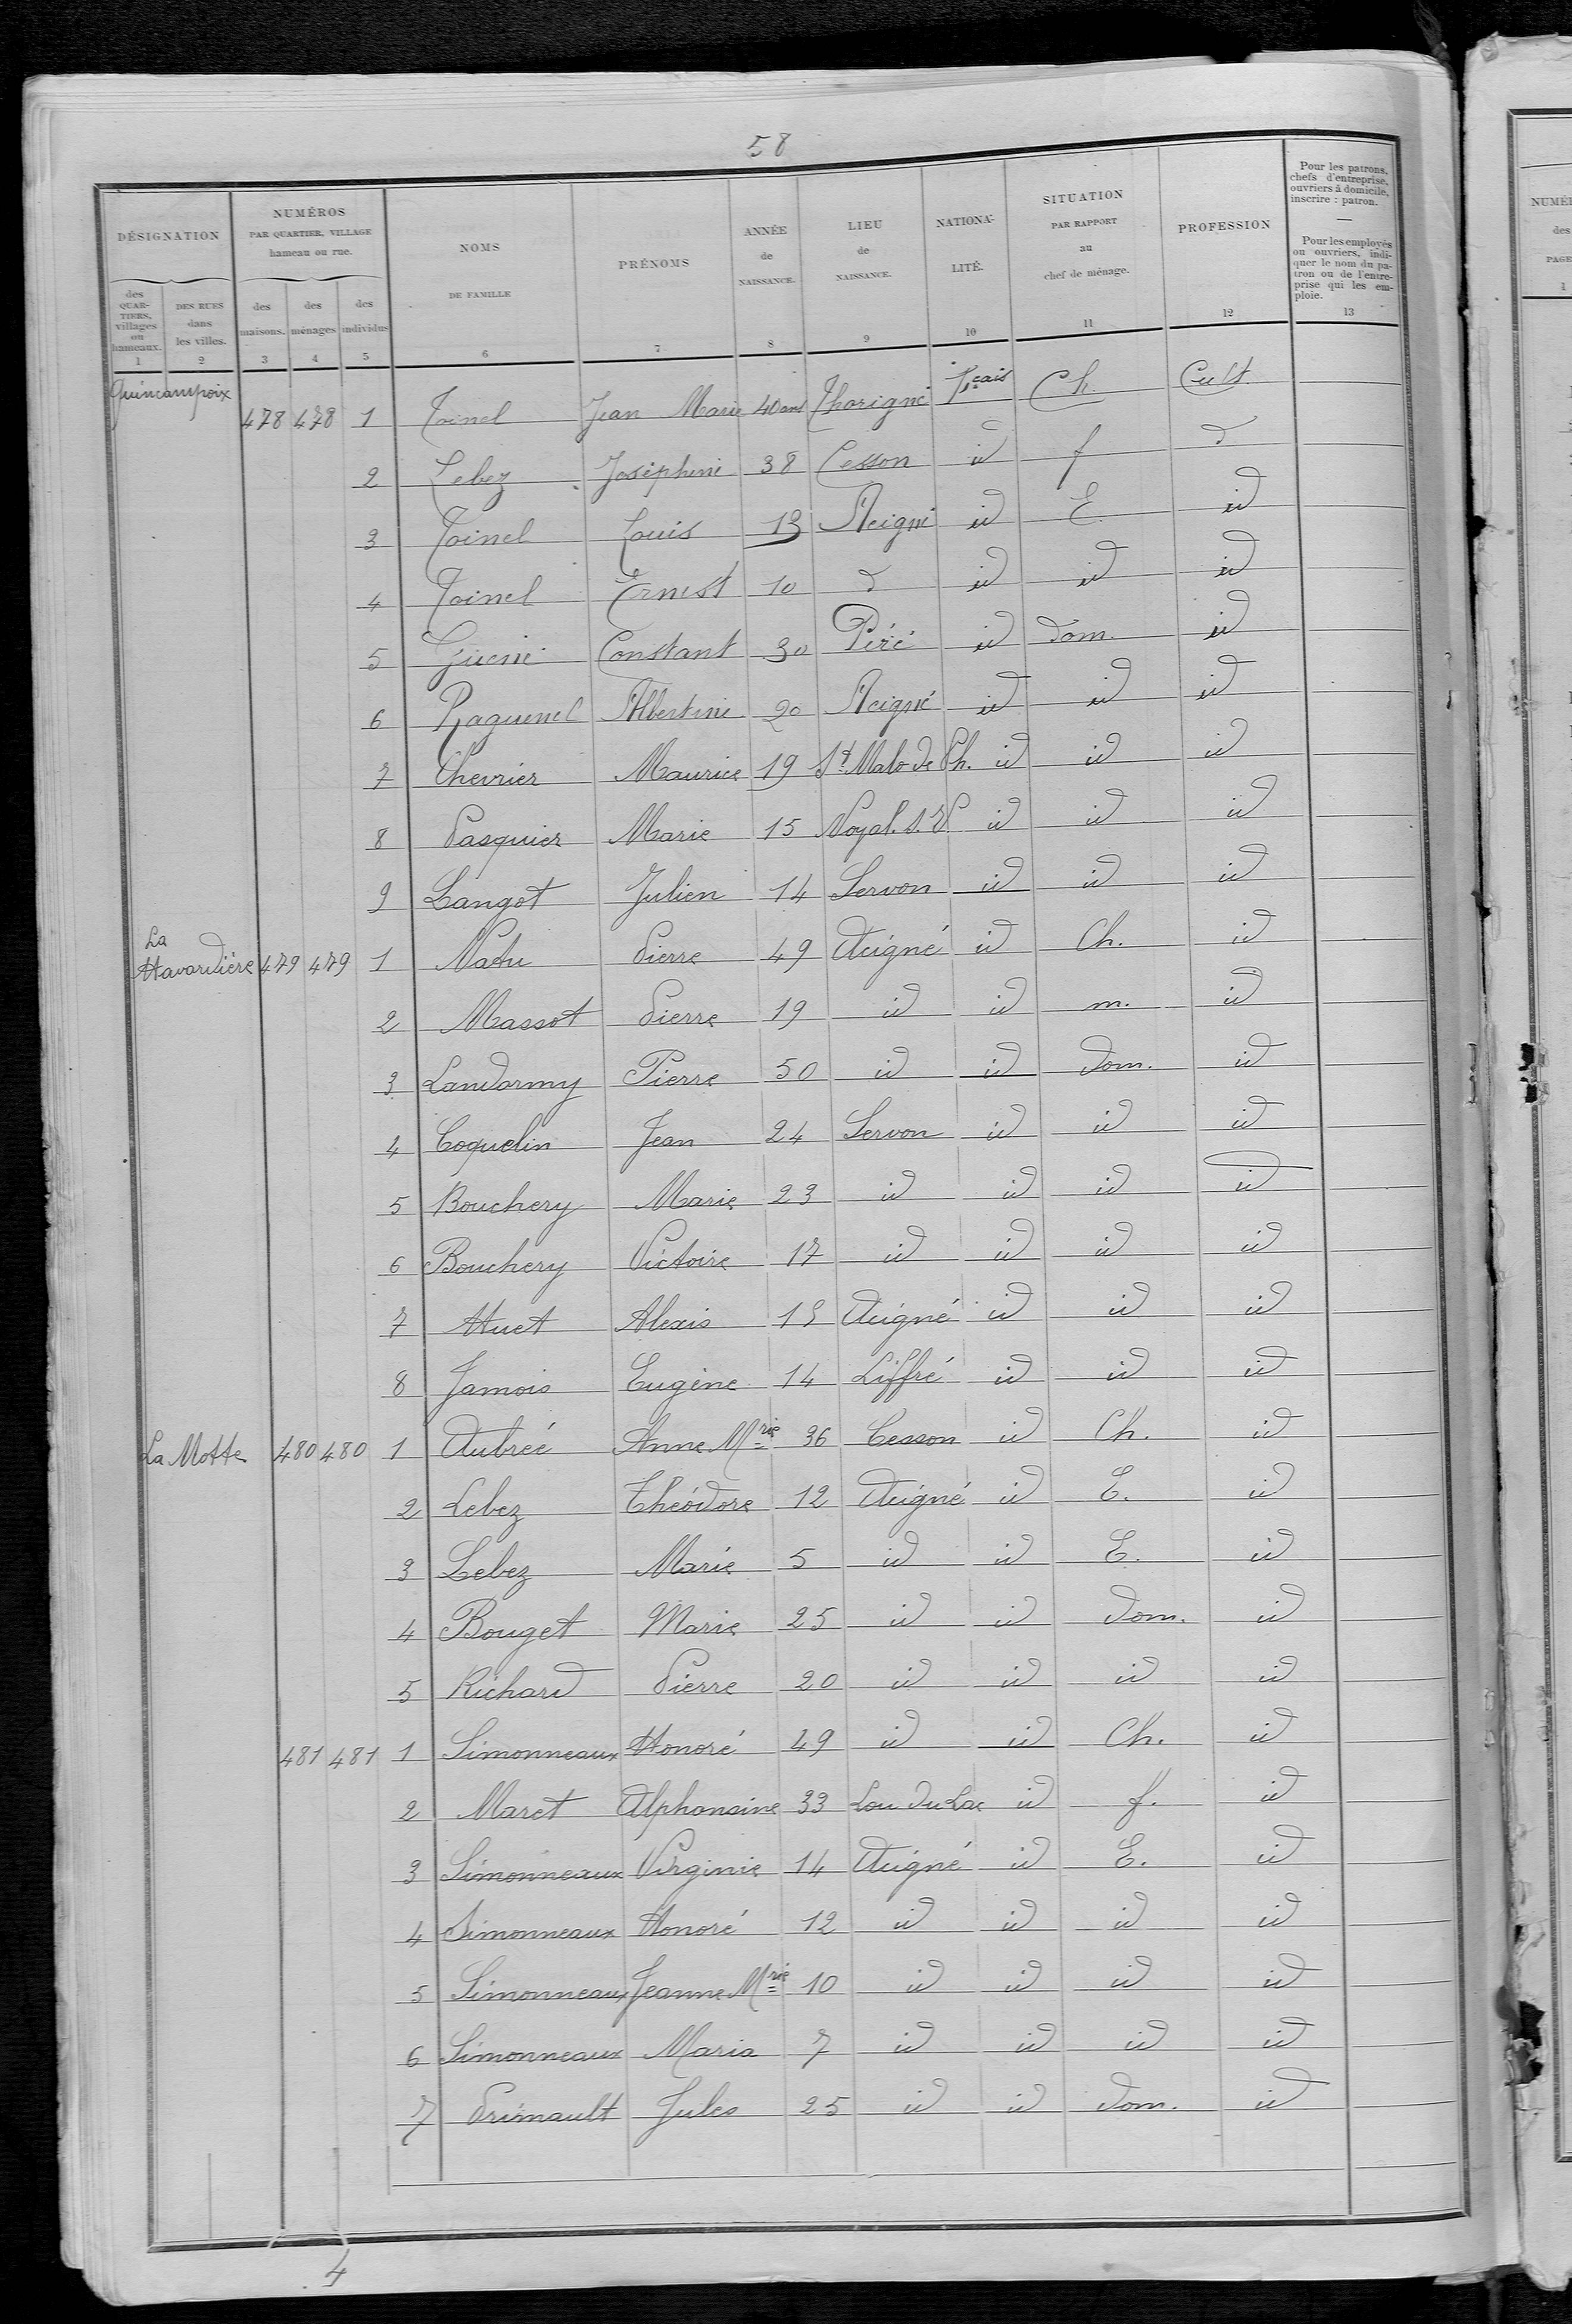 58
DÉSIGNATION
NUMÉROS
PAR QUARTIER, VILLAGE
hameau ou rue.
NOMS
DE FAMILLE
PRÉNOMS
ANNÉE
de
NAISSANCE.
LIEU
de
NAISSANCE.
NATIONA-
LITÉ.
SITUATION
PAR RAPPORT
au
chef de ménage.
PROFESSION
Pour les patrons,
chefs d'entreprise,
ouvriers à domicile,
inscrire : patron.
—
Pour les employés
ou ouvriers, indi-
quer le nom du pa-
tron ou de l'entre-
prise qui les em-
ploie.
des
QUAR-
TIERS,
villages
ou
hameaux.
DES RUES
dans
les villes.
des
maisons.
des
ménages
des
individus
1 2 3 4 5 6 7 8 9 10 11 12 13
Quincampoix 478 478 1 Toinel Jean Marie 40 ans Thorigné Fçais Ch. Cult.
2 Lebez Joséphine 38 Cesson id f d
3 Toinel Louis 13 Acigné id E. id
4 Toinel Ernest 10 d id id id
5 Constant 30 Piré id dom. id
6 Raguenel Albertine 20 Acigné id id id
7 Chevrier Maurice 19 St Malo de Ph. id id id
8 Pasquier Marie 15 Noyal. s. V id id id
9 Langot Julien 14 Servon id id id
La
Havardière 479 479 1 Pierre 49 Acigné id Ch. id
2 Massot Pierre 19 id id m. id
3 Landormy Pierre 50 id id dom. id
4 Coquelin Jean 24 Servon id id id
5 Bouchery Marie 23 id id id id
6 Bouchery Victoire 17 id id id id
7 Huet Alexis 15 Acigné id id id
8 Jamois Eugène 14 Liffré id id id
La Motte 480 480 1 Aubrée Anne Mrie 36 Cesson id Ch. id
2 Lebez Théodore 12 Acigné id E. id
3 Lebez Marie 5 id id E. id
4 Bouget Marie 25 id id dom. id
5 Richard Pierre 20 id id id id
481 481 1 Simonneaux Honoré 49 id id Ch. id
2 Maret Alphonsine 33 Lou du Lac id f. id
3 Simonneaux Virginie 14 Acigné id E. id
4 Simonneaux Honoré 12 id id id id
5 Simonneaux Jeanne Mrie 10 id id id id
6 Simonneaux Maria 7 id id id id
7 Primault Jules 25 id id dom. id
4
NUMÉ
des
PAGE
1